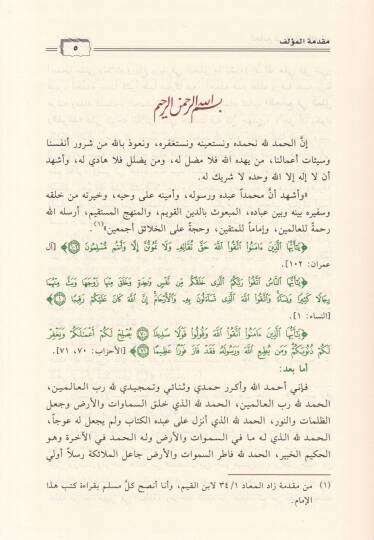 مقدمة المؤلف
٥
بسم الله الرحمن الرحيم
إنَّ الحمد لله نحمده ونستعينه ونستغفره، ونعوذ بالله من شرور أنفسنا
وسيئات أعمالنا، من يهده الله فلا مضل له، ومن يضلل فلا هادي له، وأشهد
أن لا إله إلا الله وحده لا شريك له.
«وأشهد أنَّ محمداً عبده ورسوله، وأمينه على وحيه، وخيرته من خلقه
وسفيره بينه وبين عباده، المبعوث بالدين القويم، والمنهج المستقيم، أرسله الله
رحمةً للعالمين، وإماماً للمتقين، وحجةً على الخلائق أجمعين»(١).
﴿يَٰٓأَيُّهَا ٱلَّذِينَ ءَامَنُوا۟ ٱتَّقُوا۟ ٱللَّهَ حَقَّ تُقَاتِهِۦ وَلَا تَمُوتُنَّ إِلَّا وَأَنتُم مُّسْلِمُونَ ١٠٢﴾ [آل
عمران: ١٠٢].
﴿يَٰٓأَيُّهَا ٱلنَّاسُ ٱتَّقُوا۟ رَبَّكُمُ ٱلَّذِى خَلَقَكُم مِّن نَّفْسٍ وَٰحِدَةٍ وَخَلَقَ مِنْهَا زَوْجَهَا وَبَثَّ مِنْهُمَا
رِجَالًا كَثِيرًا وَنِسَآءً وَٱتَّقُوا۟ ٱللَّهَ ٱلَّذِى تَسَآءَلُونَ بِهِۦ وَٱلْأَرْحَامَ إِنَّ ٱللَّهَ كَانَ عَلَيْكُمْ رَقِيبًا ١﴾
[النساء: ١].
﴿يَٰٓأَيُّهَا ٱلَّذِينَ ءَامَنُوا۟ ٱتَّقُوا۟ ٱللَّهَ وَقُولُوا۟ قَوْلًا سَدِيدًا ٧٠ يُصْلِحْ لَكُمْ أَعْمَٰلَكُمْ وَيَغْفِرْ
لَكُمْ ذُنُوبَكُمْ وَمَن يُطِعِ ٱللَّهَ وَرَسُولَهُۥ فَقَدْ فَازَ فَوْزًا عَظِيمًا ٧١﴾ [الأحزاب: ٧٠، ٧١].
أما بعد:
فإني أحمد الله وأكرر حمدي وثنائي وتمجيدي لله رب العالمين،
الحمد لله رب العالمين، الحمد لله الذي خلق السماوات والأرض وجعل
الظلمات والنور، الحمد لله الذي أنزل على عبده الكتاب ولم يجعل له عوجاً،
الحمد لله الذي له ما في السموات والأرض وله الحمد في الآخرة وهو
الحكيم الخبير، الحمد لله فاطر السموات والأرض جاعل الملائكة رسلاً أولي
(١) من مقدمة زاد المعاد ٣٤/١ لابن القيم، وأنا أنصح كلَّ مسلم بقراءة كتب هذا
الإمام.